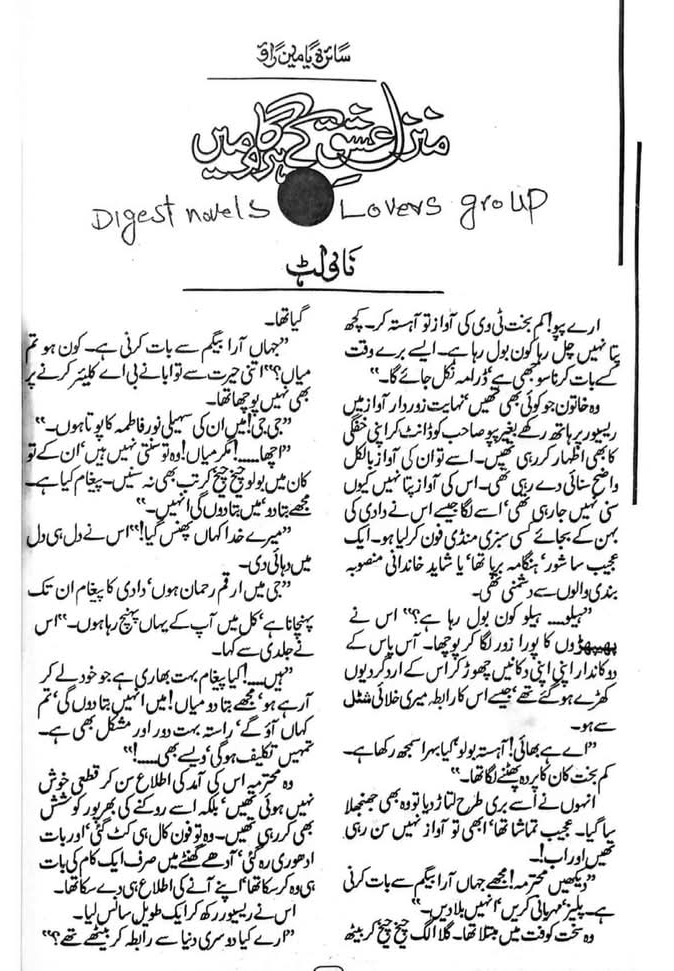 سائرہ یامین راؤ
منزل عشق کے ہر گام میں
Digest novels Lovers group
ناولٹ
ارے پپو! کم بخت ٹی وی کی آواز تو آہستہ کر۔ کچھ
پتا نہیں چل رہا کون بول رہا ہے۔ ایسے برے وقت
کے بات کرنا سوجھی ہے ڈرامہ نکل جائے گا۔"
وہ خاتون جو کوئی بھی تھیں' نہایت زوردار آواز میں
ریسیور پر ہاتھ رکھے بغیر پپو صاحب کو ڈانٹ کر اپنی خفگی
کا بھی اظہار کر رہی تھیں۔ اسے تو ان کی آواز بالکل
واضح سنائی دے رہی تھی۔ اس کی آواز پتا نہیں کیوں
سنی نہیں جا رہی تھی' اسے لگا جیسے اس نے دادی کی
بہن کے بجائے کسی سبزی منڈی فون کر لیا ہو۔ ایک
عجیب سا شور' ہنگامہ برپا تھا' یا شاید خاندانی منصوبہ
بندی والوں سے دشمنی تھی۔
"ہیلو۔۔۔ ہیلو کون بول رہا ہے؟" اس نے
پھیپھڑوں کا پورا زور لگا کر پوچھا۔ آس پاس کے
دوکاندار اپنی اپنی دکانیں چھوڑ کر اس کے ارد گرد یوں
کھڑے ہو گئے تھے' جیسے اس کا رابطہ میری خلائی شٹل
سے ہو۔
"اے ہے بھائی! آہستہ بولو' کیا بہرا سمجھ رکھا ہے۔
کم بخت کان کا پردہ پھٹنے لگا تھا۔"
انہوں نے اسے بری طرح لتاڑ دیا تو وہ بھی جھنجھلا
سا گیا۔ عجیب تماشا تھا' ابھی تو آواز نہیں سن رہی
تھیں اور اب!۔
"دیکھیں محترمہ! مجھے جہاں آرا بیگم سے بات کرنی
ہے۔ پلیز' مہربانی کریں' انہیں بلا دیں۔"
وہ سخت کوفت میں مبتلا تھا۔ گلا الگ چیخ چیخ کر بیٹھ
گیا تھا۔
"جہاں آرا بیگم سے بات کرنی ہے۔ کون ہو تم
میاں؟" اتنی حیرت سے تو ابا نے بی اے کلیئر کرنے پر
بھی نہیں پوچھا تھا۔
"جی جی! میں ان کی سہیلی نور فاطمہ کا پوتا ہوں۔"
"اچھا۔۔۔۔! مگر میاں! وہ تو سنتی نہیں ہیں' ان کے تو
کان میں بولو چیخ چیخ کر تب بھی نہ سنیں۔ پیغام کیا ہے۔
مجھے بتا دو' میں بتا دوں گی انہیں۔"
"میرے خدا کہاں پھنس گیا!" اس نے دل ہی دل
میں دہائی دی۔
"جی میں ارقم رحمان ہوں' دادی کا پیغام ان تک
پہنچانا ہے' کل میں آپ کے یہاں پہنچ رہا ہوں۔" اس
نے جلدی سے کہا۔
"ہیں۔۔۔۔! کیا پیغام بہت بھاری ہے جو خود لے کر
آ رہے ہو' مجھے بتا دو میاں! میں انہیں بتا دوں گی' تم
کہاں آؤ گے' راستہ بہت دور اور مشکل بھی ہے۔
تمہیں تکلیف ہوگی' ویسے بھی۔۔۔۔!"
وہ محترمہ اس کی آمد کی اطلاع سن کر قطعی خوش
نہیں ہوئی تھیں' بلکہ اسے روکنے کی بھرپور کوشش
بھی کر رہی تھیں۔ وہ تو فون کال ہی کٹ گئی' اور بات
ادھوری رہ گئی' آدھے گھنٹے میں صرف ایک کام کی بات
ہی وہ کر سکا تھا' اپنے آنے کی اطلاع ہی دے سکا تھا۔
اس نے ریسیور رکھ کر ایک طویل سانس لیا۔
"ارے کیا دوسری دنیا سے رابطہ کر بیٹھے تھے؟"